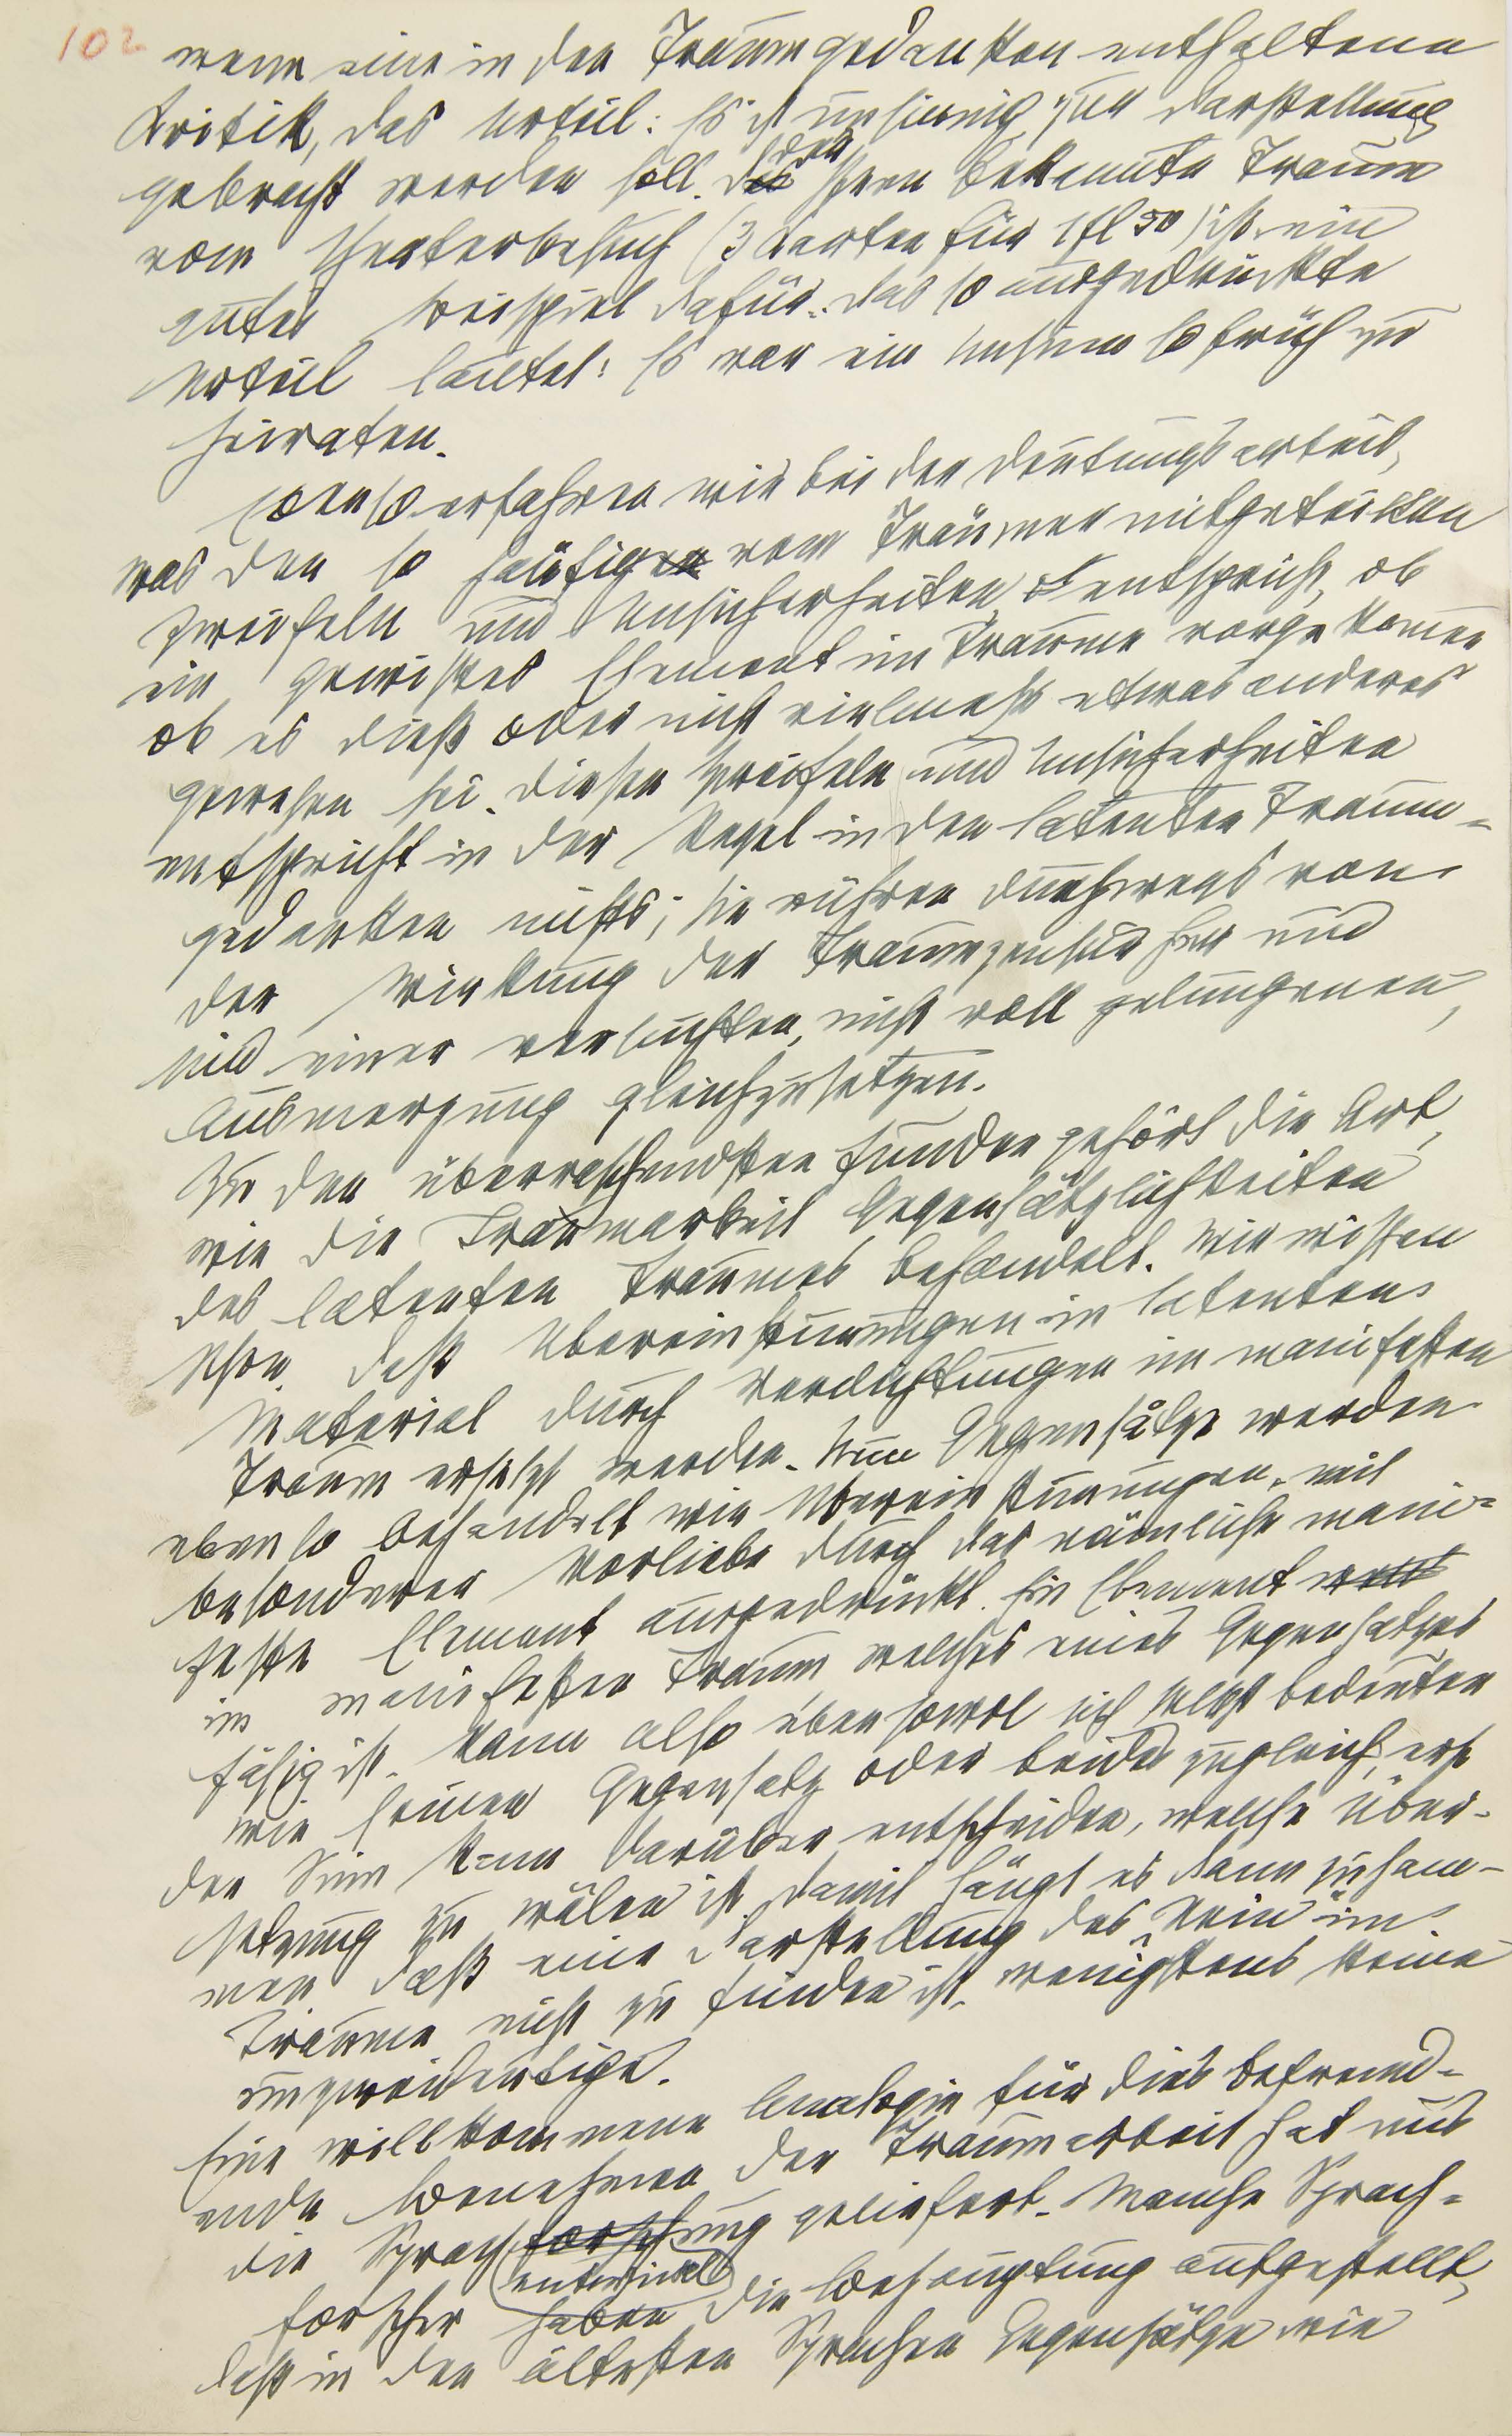 102
wenn eine in den Traumgedanken enthaltene
Kritik, das Urteil: Es ist unsinnig, zur Darstellung
gebracht werden soll. Das der Ihnen bekannte Traum
vom Theaterbesuch (3 Karten für 1 fl 50) ist ein
gutes Beispiel dafür. Das so ausgedrückte
Urteil lautet: Es war ein Unsinn so früh zu
heiraten.
Ebenso erfahren wir bei der Deutungsarbeit,
was den so häufigen vom Träumer mitgeteilten
Zweifeln und Unsicherheiten entspricht, ob
ein gewisses Element im Traume vorgekommen
ob es dieß oder nicht vielmehr etwas anderes
gewesen sei. Diesen Zweifeln und Unsicherheiten
entspricht in der Regel in den latenten Traum-
gedanken nichts; sie rühren durchwegs von
der Wirkung der Traumzensur her und
sind einer versuchten, nicht voll gelungenen,
Ausmerzung gleichzusetzen.
Zu den überraschendsten Funden gehört die Art,
wie die Traumarbeit Gegensätzlichkeiten
des latenten Traumes behandelt. Wir wissen
schon, daß Übereinstimmungen in latenten
Material durch Verdichtungen im manifesten
Traum ersetzt werden. Nun Gegensätze werden
ebenso behandelt wie Übereinstimmungen, mit
besonderer Vorliebe durch das nämliche mani-
feste Element ausgedrückt. Ein Element
im manifesten Traum welches eines Gegensatzes
fähig ist, kann also ebensowol sich selbst bedeuten
wie seinen Gegensatz oder beides zugleich; erst
der Sinn kann darüber entscheiden, welche Über-
setzung zu wälen ist. Damit hängt es dann zusam-
men daß eine Darstellung des „Nein“ im
Traume nicht zu finden ist, wenigstens keine
unzweideutige.
Eine willkommene Analogie für dies befremd-
ende Benehmen der Traumarbeit hat uns
die Sprachforschung geliefert. Manche Sprach-
entwickel
forscher haben die Behauptung aufgestellt,
daß in den ältesten Sprachen Gegensätze wie